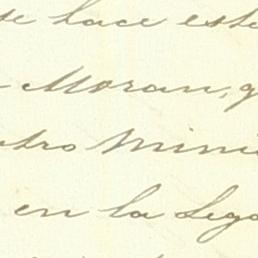 se hace este
Moran, q
tro Mini
en la Lega